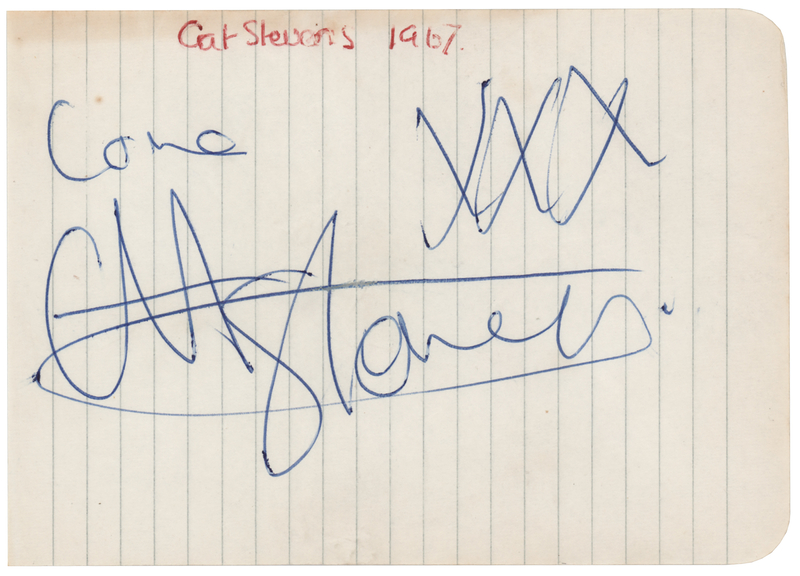 Cat Stevens 1967.
Love XXX
Cat Stevens